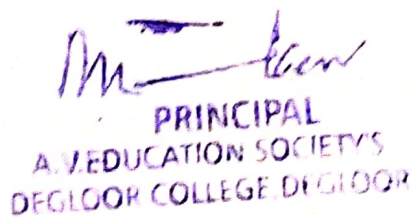 PRINCIPAL
A.V.EDUCATION SOCIETY'S
DEGLOOR COLLEGE, DEGLOOR